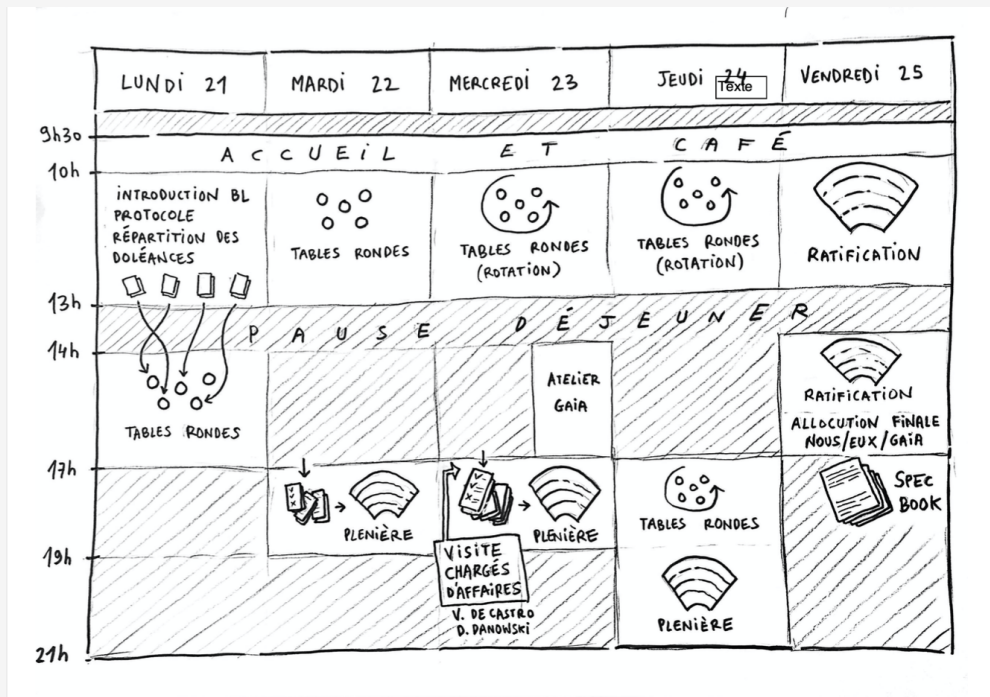 LUNDI 21
MARDI 22
MERCREDI 23
JEUDI 24
Texte
VENDREDI 25
9h30
ACCUEIL ET CAFÉ
10h
INTRODUCTION BL
PROTOCOLE
RÉPARTITION DES
DOLÉANCES
TABLES RONDES
TABLES RONDES
(ROTATION)
TABLES RONDES
(ROTATION)
RATIFICATION
13h
PAUSE DÉJEUNER
14h
TABLES RONDES
ATELIER
GAIA
RATIFICATION
ALLOCUTION FINALE
NOUS/EUX/GAIA
17h
PLENIÈRE
PLENIÈRE
VISITE
CHARGÉS
D'AFFAIRES
V. DE CASTRO
D. DANOWSKI
TABLES RONDES
PLENIÈRE
SPEC
BOOK
19h
21h